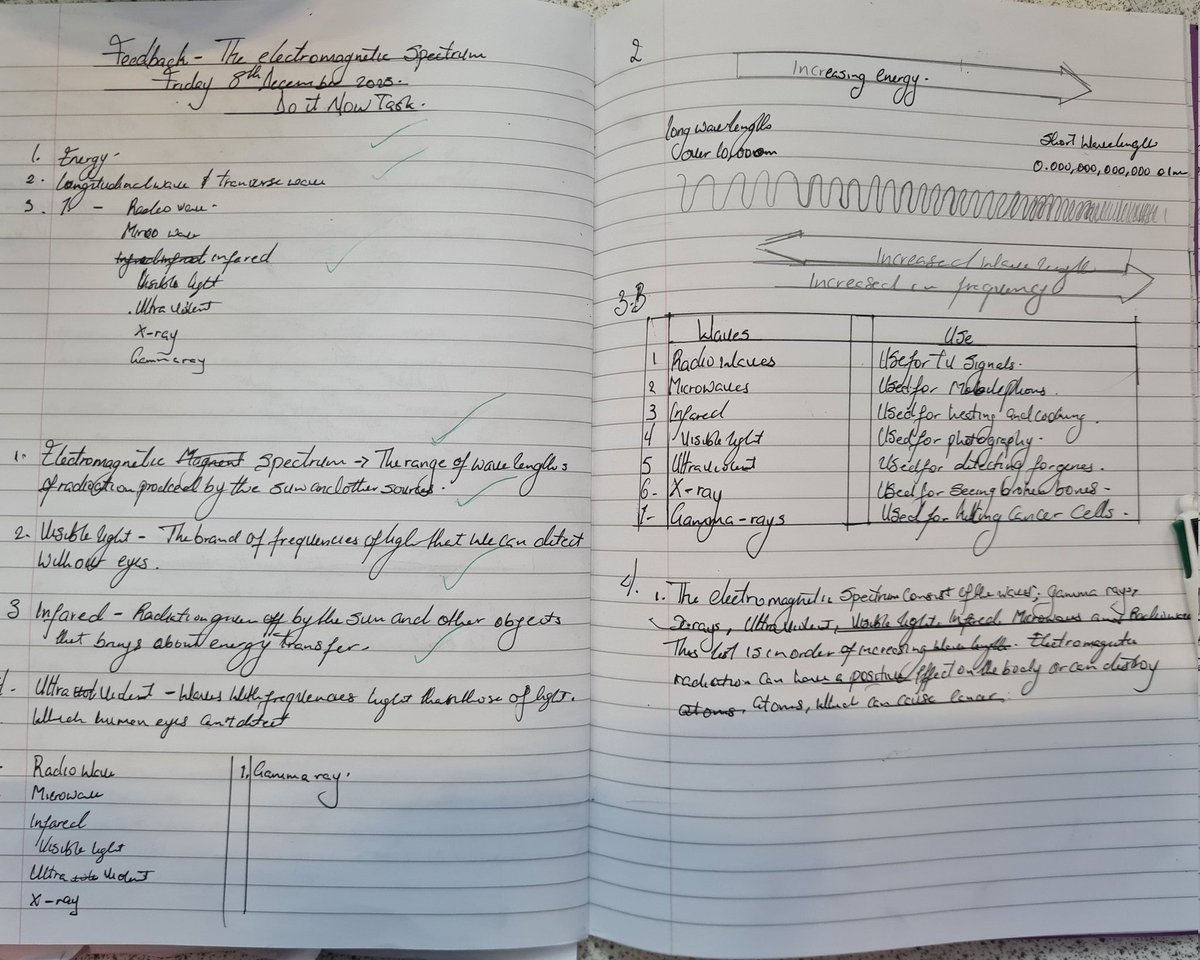 Feedback - The electromagnetic Spectrum
Friday 8th December 2023.
Do it Now Task.
1. Energy.
2. longitudinal wave & tranverse wave
3. - Radio wave.
Mirco wave
infared
Visible light
Ultra violent
X-ray
Gamma ray
1. Electromagnetic Spectrum → The range of wave lengths
of radiation produced by the sun and other sources.
2. Visible light - The brand of frequencies of ligh that we can detect
without eyes.
3 Infared - Radiation given off by the sun and other objects
that brings about energy transfer.
Ultra violent - waves with frequencies hight than those of light.
Which human eyes can't detect
Radio wave
Microwave
Infared
Visible light
Ultra violent
X-ray
1. Gamma ray.
2
Increasing energy.
long wavelengths
over 10,000m
Short Wavelength
0.000,000,000,000 01m
Increased wave length
Increased in frequency
3.B
Waves Use
1 Radio waves Use for TV Signals.
2 Microwaves Used for Mobilephons.
3 Infared Used for hesting and cooking.
4 Visible light Used for photography.
5 Ultraviolent Used for detecting forgenes.
6- X-ray Used for seeing broken bones -
7- Gamma-rays Used for killing cancer cells -
4). 1. The electromagnetic Spectrum consist of the waves; Gamma rays,
Xrays, Ultra violent, Visible light, Infared Microwaves and Radiowaves
This list is in order of increasing wave length. Electromagnetic
radiation can have a positive effect on the body or can distroy
atoms, which can cause cancer.